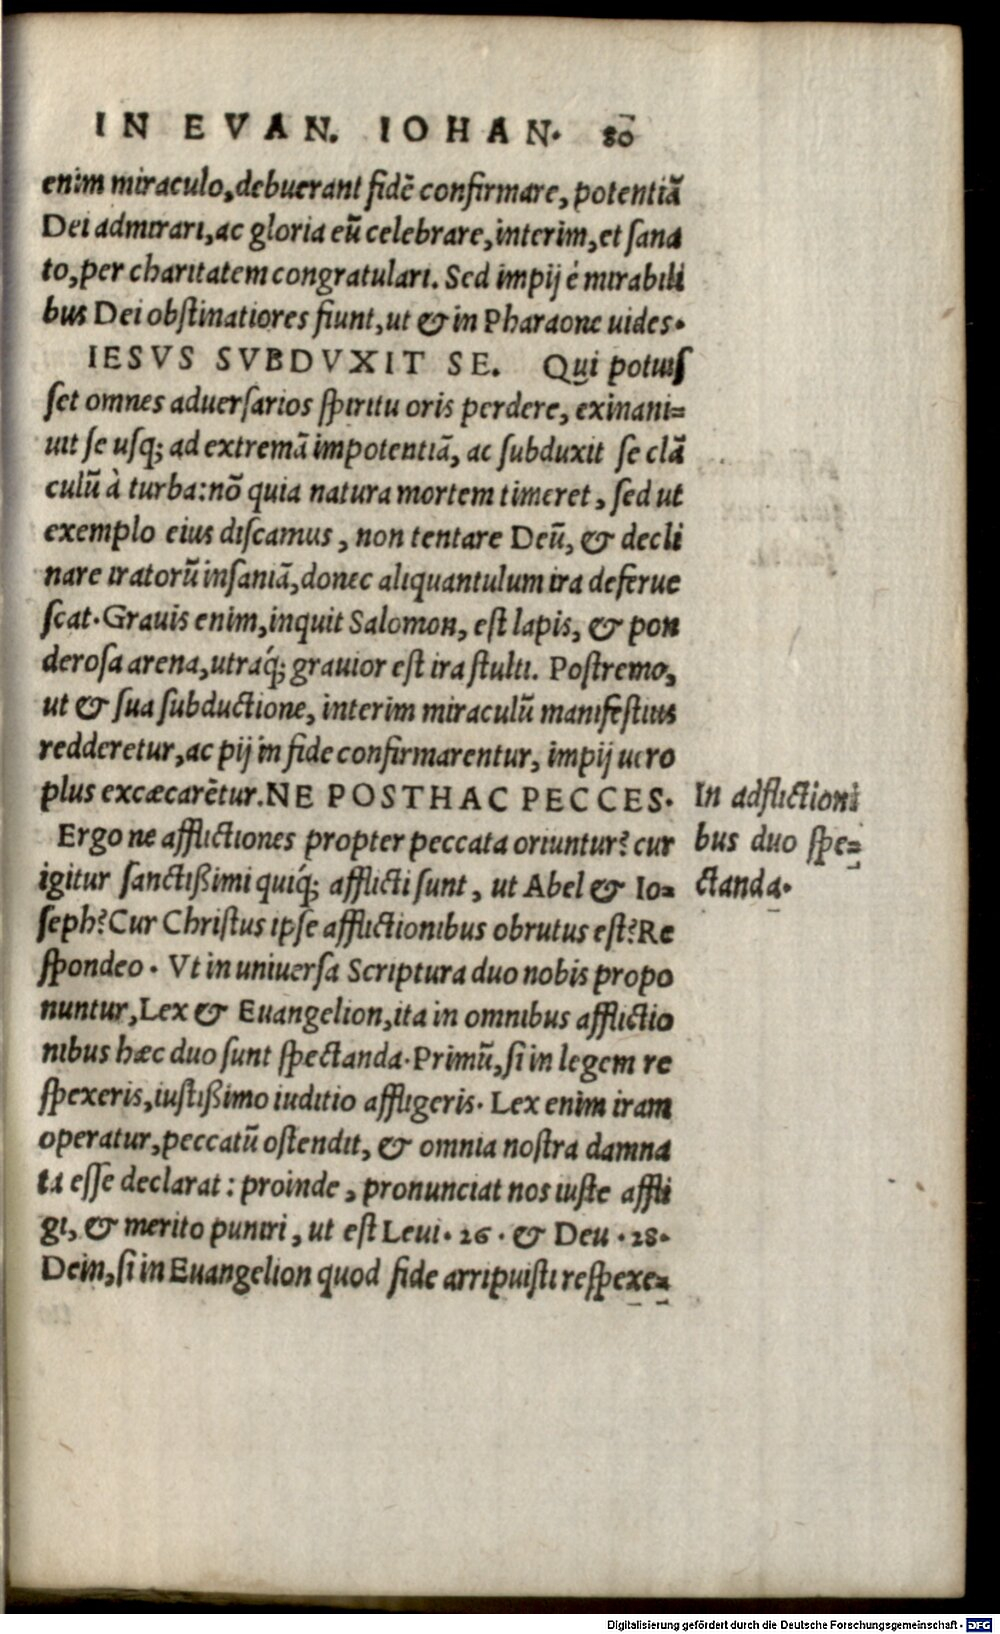 IN EVAN. IOHAN. 80
enim miraculo, debuerant fidē confirmare, potentiā
Dei admirari, ac gloria eū celebrare, interim, et sana
to, per charitatem congratulari. Sed impij é mirabili
bus Dei obstinatiores fiunt, ut & in Pharaone uides.
IESVS SVBDVXIT SE. Qui potuis
set omnes aduersarios spiritu oris perdere, exinani=
uit se usq; ad extremā impotentiā, ac subduxit se clā
culū à turba: nō quia natura mortem timeret, sed ut
exemplo eius discamus, non tentare Deū, & decli
nare iratorū insaniā, donec aliquantulum ira deferue
scat. Grauis enim, inquit Salomon, est lapis, & pon
derosa arena, utraq́; grauior est ira stulti. Postremo,
ut & sua subductione, interim miraculū manifestius
redderetur, ac pij in fide confirmarentur, impij uero
plus excæcarētur. NE POSTHAC PECCES.
Ergo ne afflictiones propter peccata oriuntur? cur
igitur sanctißimi quiq́; afflicti sunt, ut Abel & Io=
seph? Cur Christus ipse afflictionibus obrutus est? Re
spondeo. Vt in uniuersa Scriptura duo nobis propo
nuntur, Lex & Euangelion, ita in omnibus afflictio
nibus hæc duo sunt spectanda. Primū, si in legem re
spexeris, iustißimo iuditio affligeris. Lex enim iram
operatur, peccatū ostendit, & omnia nostra damna
ta esse declarat: proinde, pronunciat nos iuste affli
gi, & merito puniri, ut est Leui. 26. & Deu. 28.
Dein, si in Euangelion quod fide arripuisti respexe=
In adflictioni
bus duo spe=
ctanda.
Digitalisierung gefördert durch die Deutsche Forschungsgemeinschaft - DFG